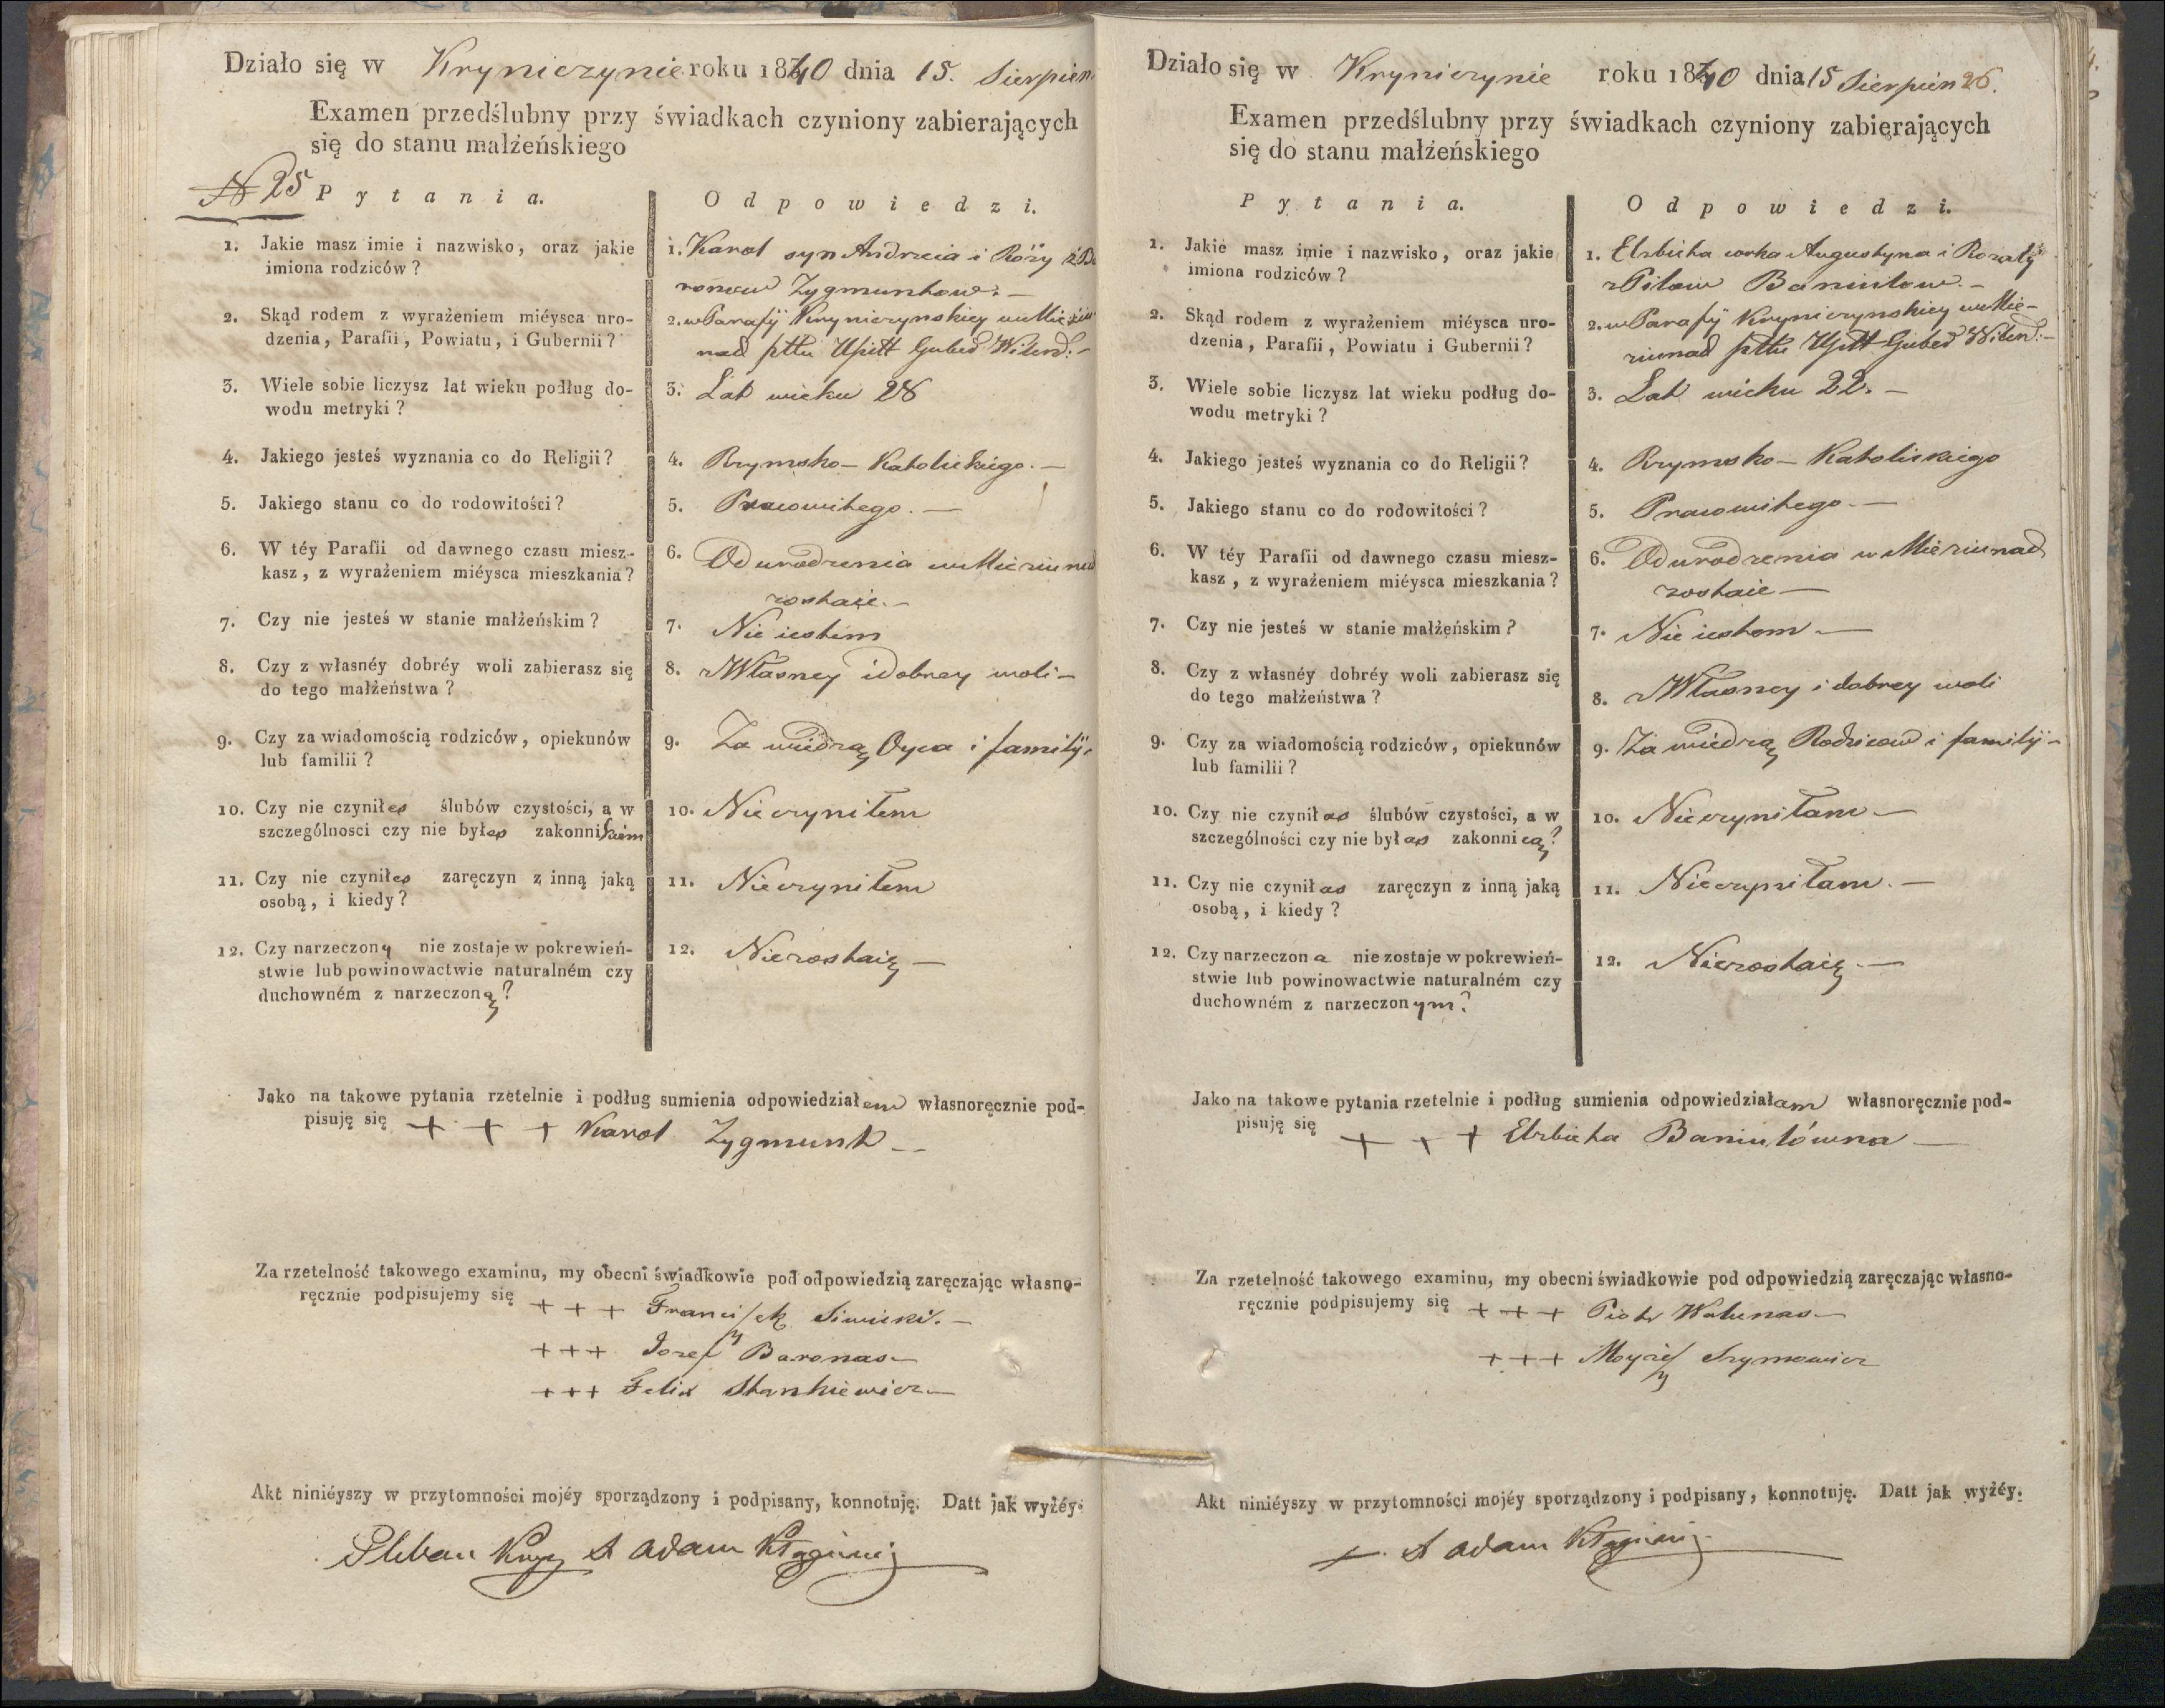 Działo się w Kryniczynie roku 1840 dnia 15. Sierpien
Examen przedślubny przy świadkach czyniony zabierających
się do stanu małżeńskiego
N 25
Pytania.
Odpowiedzi.
1. Jakie masz imie i nazwisko, oraz jakie
imiona rodziców?
1. Karol syn Andrzeia i Róży z Ba
ronow Zygmuntow. –
2. Skąd rodem z wyrażeniem miéysca uro-
dzenia, Parafii, Powiatu, i Gubernii?
2. w Parafÿ Kryniczynskiey w Mieziu
nad pttu Upitt Guber Wilend: –
3. Wiele sobie liczysz lat wieku podług do-
wodu metryki?
3. Lat wieku 28
4. Jakiego jesteś wyznania co do Religii?
4. Rzymsko – Katolickiego. –
5. Jakiego stanu co do rodowitości?
5. Pracowitego. –
6. W téy Parafii od dawnego czasu miesz-
kasz, z wyrażeniem miéysca mieszkania?
6. Od urodzenia w Mieziunad
zostaie. –
7. Czy nie jesteś w stanie małżeńskim?
7. Nie iestem
8. Czy z własnéy dobréy woli zabierasz się
do tego małżeństwa?
8. z Własney i dobrey woli –
9. Czy za wiadomością rodziców, opiekunów
lub familii?
9. Za wiedzą Oyca i familÿ.
10. Czy nie czyniłes ślubów czystości, a w
szczególnosci czy nie byłes zakonnikiem
10. Nieczyniłem
11. Czy nie czyniłes zaręczyn z inną jaką
osobą, i kiedy?
11. Nieczyniłem
12. Czy narzeczony nie zostaje w pokrewień-
stwie lub powinowactwie naturalném czy
duchowném z narzeczoną?
12. Niezostaię –
Jako na takowe pytania rzetelnie i podług sumienia odpowiedziałem własnoręcznie pod-
pisuję się + + + Karol Zygmunt –
Za rzetelność takowego examinu, my obecni świadkowie pod odpowiedzią zaręczając własno-
ręcznie podpisujemy się + + + Franciszek Siwicki. –
+ + + Jozef Baronas –
+ + + Felix Stankiewicz –
Akt niniéyszy w przytomności mojéy sporządzony i podpisany, konnotuję. Datt jak wyżéy.
Pleban Kryn X Adam
Działo się w Kryniczynie roku 1840 dnia 15 Sierpien 26.
Examen przedślubny przy świadkach czyniony zabierających
się do stanu małżeńskiego
Pytania.
Odpowiedzi.
1. Jakie masz imie i nazwisko, oraz jakie
imiona rodziców?
1. Elzbieta corka Augustyna i Rozalÿ
z Pilow Baniulow. –
2. Skąd rodem z wyrażeniem miéysca uro-
dzenia, Parafii, Powiatu i Gubernii?
2. w Parafÿ Kryniczynskiey w Mie-
ziunad pttu Upitt Guber Wilen: –
3. Wiele sobie liczysz lat wieku podług do-
wodu metryki?
3. Lat wieku 22. –
4. Jakiego jesteś wyznania co do Religii?
4. Rzymsko – Katolickiego
5. Jakiego stanu co do rodowitości?
5. Pracowitego. –
6. W téy Parafii od dawnego czasu miesz-
kasz, z wyrażeniem miéysca mieszkania?
6. Od urodzenia w Mieziunad
zostaie –
7. Czy nie jesteś w stanie małżeńskim?
7. Nie iestem –
8. Czy z własnéy dobréy woli zabierasz się
do tego małżeństwa?
8. z Własney i dobrey woli
9. Czy za wiadomością rodziców, opiekunów
lub familii?
9. Za wiedzą Rodzicow i familÿ –
10. Czy nie czyniłas ślubów czystości, a w
szczególności czy nie byłas zakonnicą?
10. Nieczyniłam –
11. Czy nie czyniłas zaręczyn z inną jaką
osobą, i kiedy?
11. Nieczyniłam. –
12. Czy narzeczona nie zostaje w pokrewień-
stwie lub powinowactwie naturalném czy
duchowném z narzeczonym?
12. Niezostaię. –
Jako na takowe pytania rzetelnie i podług sumienia odpowiedziałam własnoręcznie pod-
pisuję się + + + Elzbieta Baniulówna –
Za rzetelność takowego examinu, my obecni świadkowie pod odpowiedzią zaręczając własno-
ręcznie podpisujemy się + + + Piotr Walunas –
+ + + Moyżesz Szymowicz
Akt niniéyszy w przytomności mojéy sporządzony i podpisany, konnotuję. Datt jak wyżéy.
X Adam